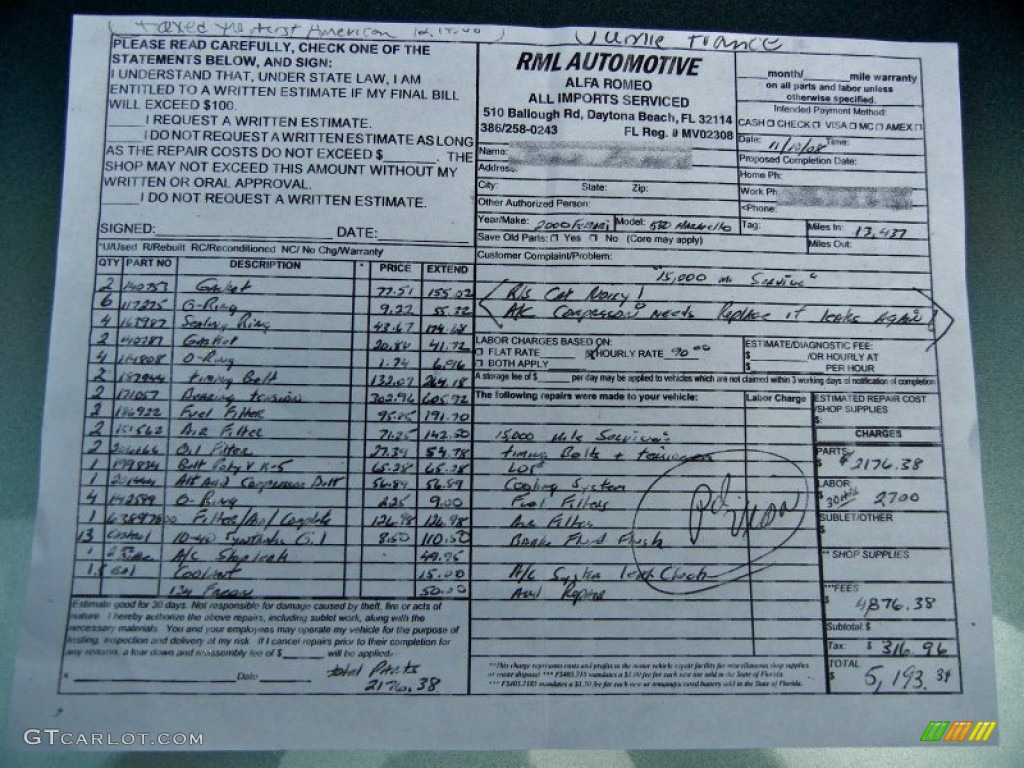 PLEASE READ CAREFULLY, CHECK ONE OF THE
STATEMENTS BELOW, AND SIGN:
I UNDERSTAND THAT, UNDER STATE LAW, I AM
ENTITLED TO A WRITTEN ESTIMATE IF MY FINAL BILL
WILL EXCEED $100.
_____ I REQUEST A WRITTEN ESTIMATE.
_____ I DO NOT REQUEST A WRITTEN ESTIMATE AS LONG
AS THE REPAIR COSTS DO NOT EXCEED $_______. THE
SHOP MAY NOT EXCEED THIS AMOUNT WITHOUT MY
WRITTEN OR ORAL APPROVAL.
_____ I DO NOT REQUEST A WRITTEN ESTIMATE.
SIGNED: DATE:
*U/Used R/Rebuilt RC/Reconditioned NC/ No Chg/Warranty
RML AUTOMOTIVE
ALFA ROMEO
ALL IMPORTS SERVICED
510 Ballough Rd, Daytona Beach, FL 32114
386/258-0243 FL Reg. # MV02308
month/ mile warranty
on all parts and labor unless
otherwise specified.
Intended Payment Method:
CASH CHECK VISA MC AMEX
Date: 11/10/08 Time:
Name:
Proposed Completion Date:
Address:
Home Ph:
City: State: Zip:
Work Ph.
Other Authorized Person:
Phone:
Year/Make: 2000 Ferrari Model: 550 Maranello Tag: Miles In: 13,437
Save Old Parts: Yes No (Core may apply) Miles Out:
Customer Complaint/Problem:
"15,000 mi Service"
R/S Cat Noisy!
A/C Compressor needs Replace it leaks Again!
QTY PART NO DESCRIPTION * PRICE EXTEND
2 140753 Gasket 77.51 155.02
6 117275 O-Ring 9.22 55.32
4 163987 Sealing Ring 43.67 174.68
2 Gasket 20.86 41.72
4 114808 O-Ring 1.74 6.96
2 187944 Timing Belt 132.09 264.18
2 171057 Bearing tension 302.96 605.92
2 186922 Fuel Filter 95.85 191.70
2 151562 Air Filter 71.25 142.50
2 Oil Filter 27.39 54.78
1 199834 Belt Poly V K-5 65.28 65.28
1 A/C And Compressor Belt 56.89 56.89
4 142599 O-Ring 2.25 9.00
1 Filter/Air/Complete 126.98 126.98
13 Castrol 10-40 Synthetic Oil 8.50 110.50
1 A/C Stop leak 49.95
1.5 Gal Coolant 15.00
134 Freon 50.00
LABOR CHARGES BASED ON:
FLAT RATE HOURLY RATE 90.00
BOTH APPLY
ESTIMATE/DIAGNOSTIC FEE:
$ /OR HOURLY AT
$ PER HOUR
A storage fee of $ per day may be applied to vehicles which are not claimed within 3 working days of notification of completion.
The following repairs were made to your vehicle: Labor Charge
15,000 Mile Service:
timing Belts + tensioners
LOF
Cooling System
Fuel Filters
Air Filter
Brake Fluid Flush
A/C System leak Check
And Repair
ESTIMATED REPAIR COST
/SHOP SUPPLIES
$:
CHARGES
PARTS
$ 2176.38
LABOR
$ 30 HRS 2700
SUBLET/OTHER
$
** SHOP SUPPLIES
***FEES
$ 4876.38
Subtotal $
Tax: $ 316.96
TOTAL
$ 5,193.34
Estimate good for 30 days. Not responsible for damage caused by theft, fire or acts of
nature. I hereby authorize the above repairs, including sublet work, along with the
necessary materials. You and your employees may operate my vehicle for the purpose of
testing, inspection and delivery at my risk. If I cancel repairs prior to their completion for
any reasons, a tear down and reassembly fee of $ will be applied.
Date
total Parts
2176.38
**This charge represents costs and profits to the motor vehicle repair facility for miscellaneous shop supplies
or waste disposal
GTCARLOT.COM